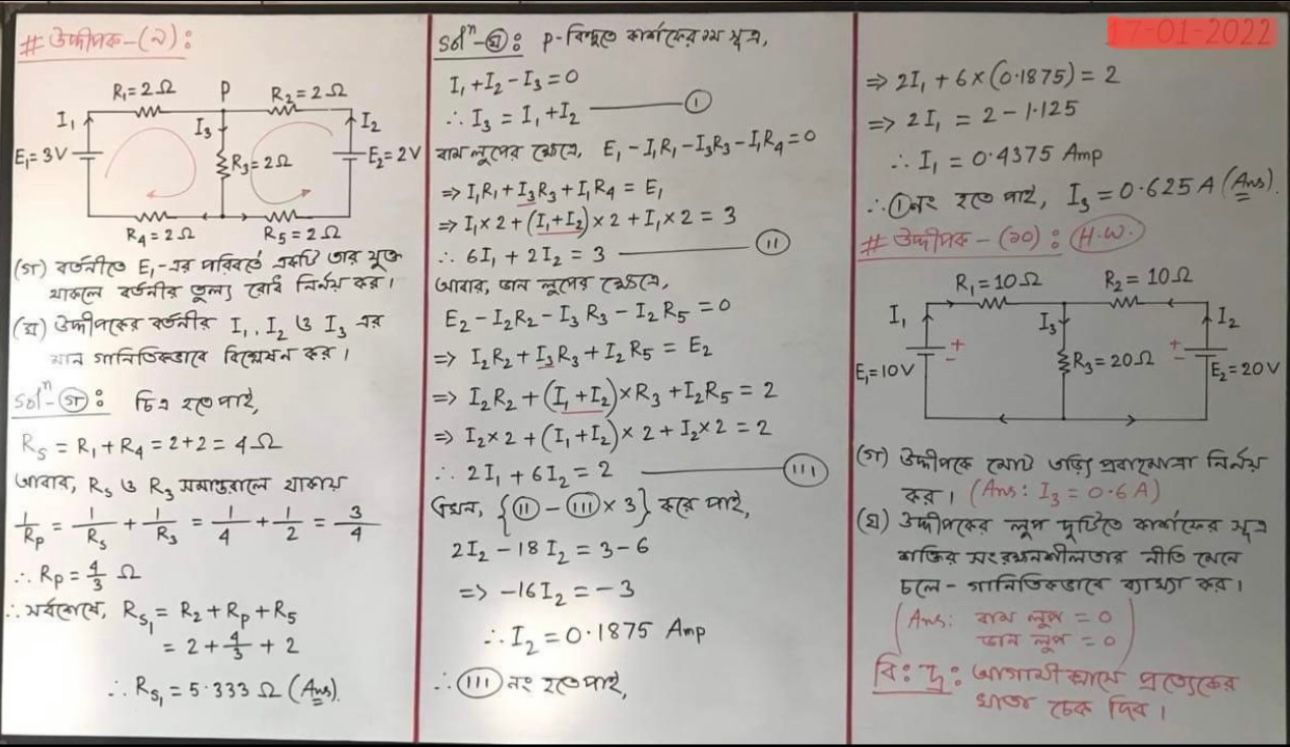 # উদ্দীপক-(৯):
R₁=2Ω P R₂=2Ω
I₁ I₃ I₂
E₁=3V R₃=2Ω E₂=2V
R₄=2Ω R₅=2Ω
(গ) বর্তনীতে E₁-এর পরিবর্তে একটি তার যুক্ত
থাকলে বর্তনীর তুল্য রোধ নির্ণয় কর।
(ঘ) উদ্দীপকের বর্তনীর I₁, I₂ ও I₃ এর
মান গানিতিকভাবে বিশ্লেষন কর।
Solⁿ-(গ): চিত্র হতে পাই,
Rs = R₁+R₄ = 2+2 = 4Ω
আবার, Rs ও R₃ সমান্তরালে থাকায়
1/Rp = 1/Rs + 1/R₃ = 1/4 + 1/2 = 3/4
∴ Rp = 4/3 Ω
∴ সর্বশেষে, Rs₁ = R₂+Rp+R₅
= 2+4/3+2
∴ Rs₁ = 5.333 Ω (Ans).
Solⁿ-(ঘ): P-বিন্দুতে কার্শফের ১ম সূত্র,
I₁+I₂-I₃=0
∴ I₃ = I₁+I₂ — (I)
বাম লুপের ক্ষেত্রে, E₁-I₁R₁-I₃R₃-I₁R₄=0
⇒ I₁R₁+I₃R₃+I₁R₄ = E₁
⇒ I₁×2+(I₁+I₂)×2+I₁×2 = 3
∴ 6I₁+2I₂ = 3 — (II)
আবার, ডান লুপের ক্ষেত্রে,
E₂-I₂R₂-I₃R₃-I₂R₅=0
⇒ I₂R₂+I₃R₃+I₂R₅ = E₂
⇒ I₂R₂+(I₁+I₂)×R₃+I₂R₅ = 2
⇒ I₂×2+(I₁+I₂)×2+I₂×2 = 2
∴ 2I₁+6I₂ = 2 — (III)
এখন, {(II)-(III)×3} করে পাই,
2I₂-18I₂ = 3-6
⇒ -16I₂ = -3
∴ I₂ = 0.1875 Amp
∴ (III) নং হতে পাই,
17-01-2022
⇒ 2I₁+6×(0.1875) = 2
⇒ 2I₁ = 2-1.125
∴ I₁ = 0.4375 Amp
∴ (I) নং হতে পাই, I₃ = 0.625 A (Ans).
# উদ্দীপক-(১০): (H.W.)
R₁=10Ω R₂=10Ω
I₁ I₃ I₂
+ - + -
E₁=10V R₃=20Ω E₂=20V
(গ) উদ্দীপকে মোট তড়িৎ প্রবাহমাত্রা নির্ণয়
কর। (Ans: I₃=0.6A)
(ঘ) উদ্দীপকের লুপ দুটিতে কার্শফের সূত্র
শক্তির সংরক্ষনশীলতার নীতি মেনে
চলে-গানিতিকভাবে ব্যাখ্যা কর।
(Ans: বাম লুপ = 0
ডান লুপ = 0)
বি: দ্র: আগামী ক্লাসে প্রত্যেকের
খাতা চেক দিব।